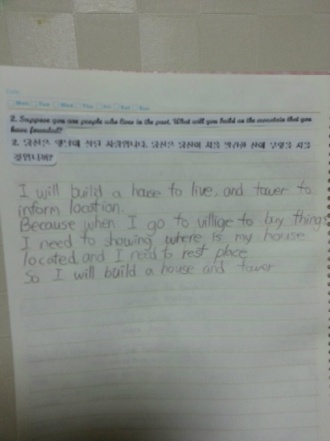 Mon Tue Wed Thu Fri Sat Sun
2. Suppose you are people who lives in the past. What will you build on the mountain that you
have founded?
2. 당신은 옛날에 살던 사람입니다. 당신은 당신이 처음 발견한 산에 무엇을 지을
것입니까?
I will build a house to live, and tower to
inform location.
Because when I go to villige to buy things
I need to showing where is my house
located and I need to rest place
So I will build a house and tower